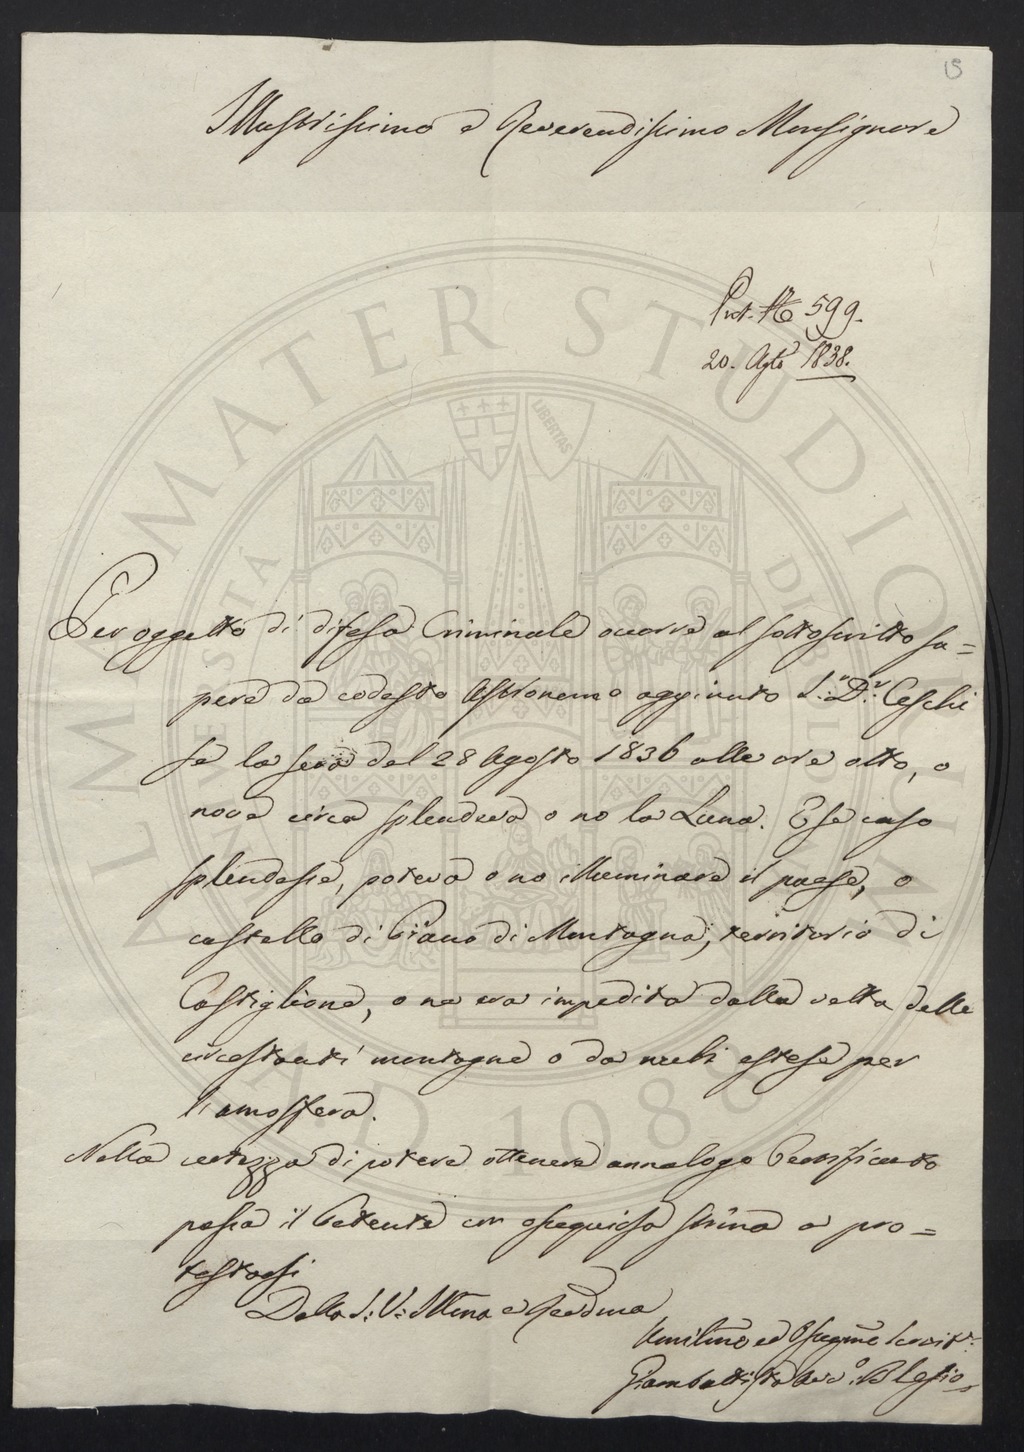 15
Illustrissimo e Reverendissimo Monsignore
Prot. No 599.
20. Agto 1838.
Per oggetto di difesa Criminale occorre al sottoscritto sa=
pere da codesto Astronomo aggiunto S:r D.r Ceschi
se la sera del 28 Agosto 1836 alle ore otto, o
nove circa splendeva o no la Luna. E se caso
splendesse, poteva o no illuminare il paese, o
castello di Piano di Montagna, territorio di
Castiglione, o ne era impedita dalla vetta delle
circostanti montagne o da nubi estese per
l'amosfera.
Nella certezza di potere ottenere annalogo Certificato
passa il Petente con ossequiosa stima a pro=
testarsi
Della S: V: Illma e Revdma
Umilmo ed Ossequmo Servit.e
Giambattista Avv.o Blesio
ALMA MATER STUDIORUM
UNIVERSITÀ DI BOLOGNA
LIBERTAS
A.D. 1088